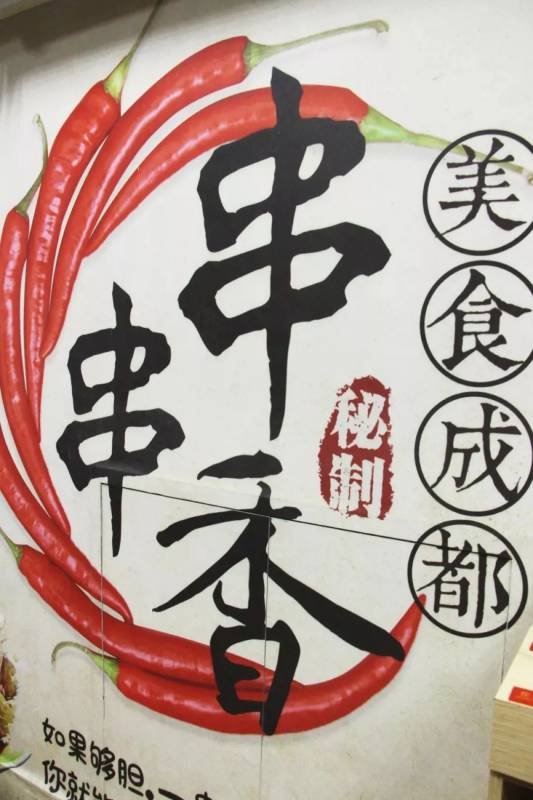 串串香
秘制
美食成都
如果够胆,一
你就